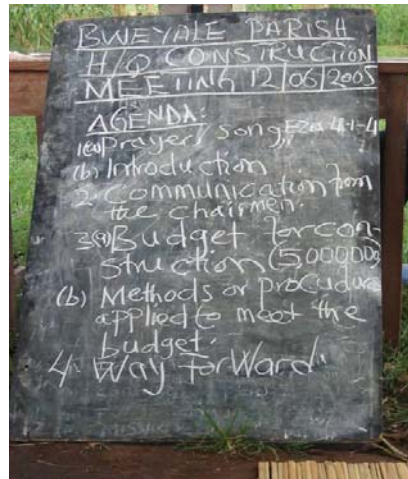 BWEYALE PARISH
H/Q CONSTRUCTION
MEETING 12/06/2005
AGENDA:
1(a) Prayer/song, Ezra 4:1-4
(b) Introduction
2. Communication from
the chairmen.
3(a) Budget for con-
struction (500000)
(b) Methods or procudure
applied to meet the
budget.
4. Way forward.